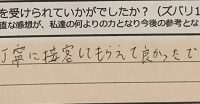 を受けられていかがでしたか？（ズバリ1
直な感想が、私達の何よりの力となり今後の参考とな
丁寧に接客してもらえて良かったで